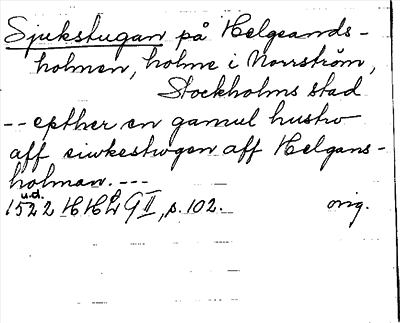 Sjukstugan på Helgeands-
holmen, holme i Norrström,
Stockholms stad
-- epther en gamul hustro
aff siwkestwgen aff Helgans-
holman. ---
u.d.
1522 HHL GII, s. 102. orig.